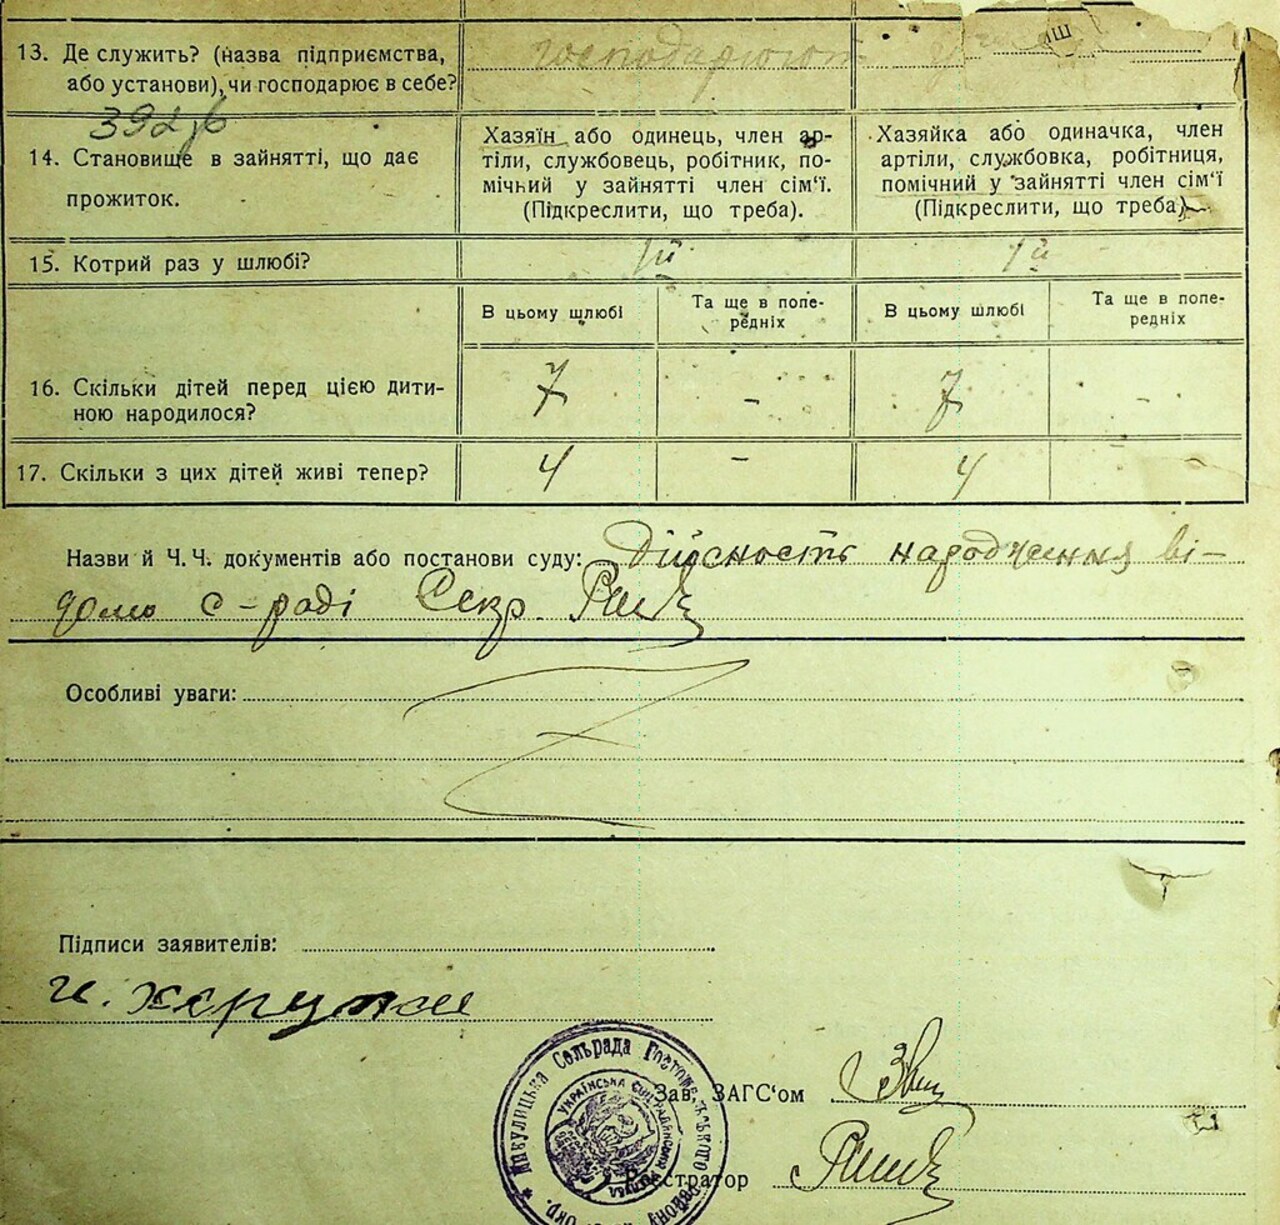 13. Де служить? (назва підприємства,
або установи), чи господарює в себе?
господарюют
392/б
14. Становище в зайнятті, що дає
прожиток.
Хазяїн або одинець, член ар-
тіли, службовець, робітник, по-
мічний у зайнятті член сім'ї.
(Підкреслити, що треба).
Хазяйка або одиначка, член
артіли, службовка, робітниця,
помічний у зайнятті член сім'ї
(Підкреслити, що треба)
15. Котрий раз у шлюбі?
1й
1й
В цьому шлюбі
Та ще в попе-
редніх
В цьому шлюбі
Та ще в попе-
редніх
16. Скільки дітей перед цією дити-
ною народилося?
7
-
7
-
17. Скільки з цих дітей живі тепер?
4
-
4
-
Назви й Ч. Ч. документів або постанови суду: Дійсность народження ві-
домо с-раді Секр.
Особливі уваги:
Підписи заявителів:
Зав. ЗАГС'ом
Реєстратор
Микулицька Сельрада
Українська